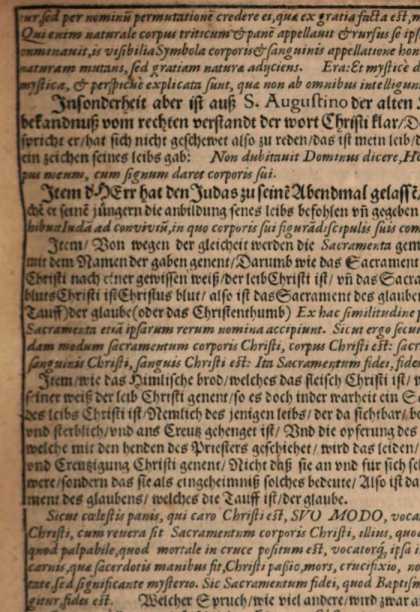 ur, sed per nominũ permutationẽ credere ei, quæ ex gratia facta est, m
Qui enim naturale corpus triticum & panẽ appellauit & rursus se ips
onminauit, is visibilia Symbola corporis & sanguinis appellatione hon
naturam mutans, sed gratiam naturæ adijciens. Era: Et mysticè d
mysticæ, & perspicuè explicata sunt, quæ non ab omnibus intelligun
Insonderheit aber ist auß S. Augustino der alten
bekandnuß vom rechten verstandt der wort Christi klar/D
spricht er/hat sich nicht geschewet also zu reden/das ist mein leib/d
ein zeichen seines leibs gab: Non dubitauit Dominus dicere, Ho
pus meum, cum signum daret corporis sui.
Item d HErr hat den Judas zu seinẽ Abendmal gelassẽ,
chẽ er seinẽ jüngern die anbildung senes leibs befohlen vñ gegeben
hibuit Iudã ad conviviũ, in quo corporis sui figurã discipulis suis com
Item/ Von wegen der gleicheit werden die Sacramenta gem
mit dem Namen der gaben genent/Darumb wie das Sacrament
Christi nach einer gewissen weiß/der leib Christi ist/ vñ das Sacra
bluts Christi ist Christus blut/ also ist das Sacrament des glaubens
Tauff) der glaube (oder das Christenthumb) Ex hac similitudine p
Sacramenta etiã ipsarum rerum nomina accipiunt. Sicut ergo secu
dam modum sacramentum corporis Christi, corpus Christi est: sacr
sanguinis Christi, sanguis Christi est: Ita Sacramentum fidei, fides
Item/wie das Himlische brod/welches das fleisch Christi ist/
seiner weiß der leib Christi genent/so es doch inder warheit ein S
des leibs Christi ist/Nemlich des jenigen leibs/ der da sichtbar/be
vnd sterblich/vnd ans Creutz gehenget ist/ Vnd die opferung des
welche mit den henden des Priesters geschiehet/ wird das leiden/
vnd Creutzigung Christi genent/ Nicht daß sie an vnd fur sich sel
were/sondern das sie als ein geheimniß solches bedeute/ Also ist da
ment des glaubens/ welches die Tauff ist/der glaube.
Sicut cœlestis panis, qui caro Christi est, SVO MODO, voca
Christi, cum reuera sit Sacramentum corporis Christi, illius, quod
quod palpabile, quod mortale in cruce positum est, vocatorq́, ipsa i
carnis, quæ sacerdotis manibus fit, Christi passio, mors, crucifixio, no
tate, sed significante mysterio. Sic Sacramentum fidei, quod Baptism
gitur fides est. Welcher Spruch/wie viel andere/wird zwar